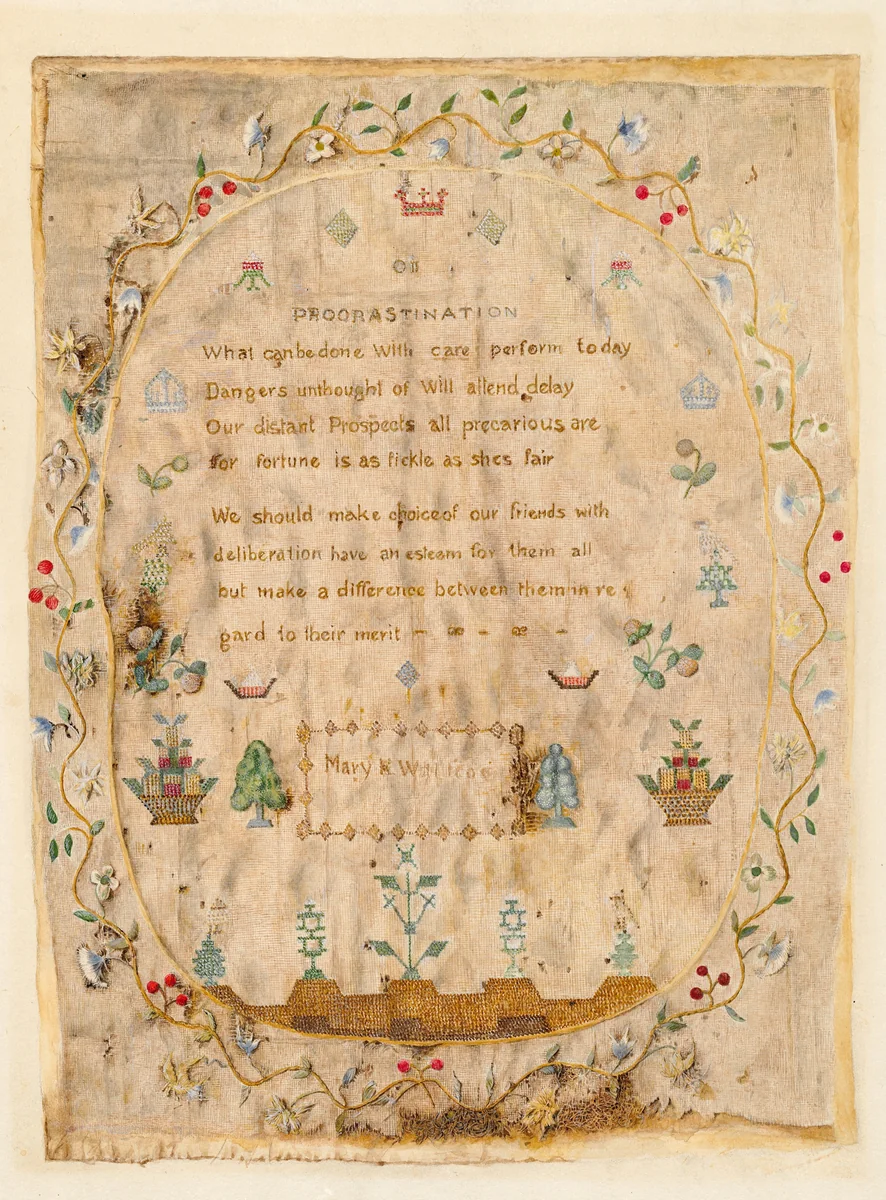 ON
PROCRASTINATION
What can be done With care perform to day
Dangers unthought of Will attend delay
Our distant Prospects all precarious are
for fortune is as fickle as shes fair
We should make choice of our friends with
deliberation have an esteem for them all
but make a difference between them in re
gard to their merit
Mary